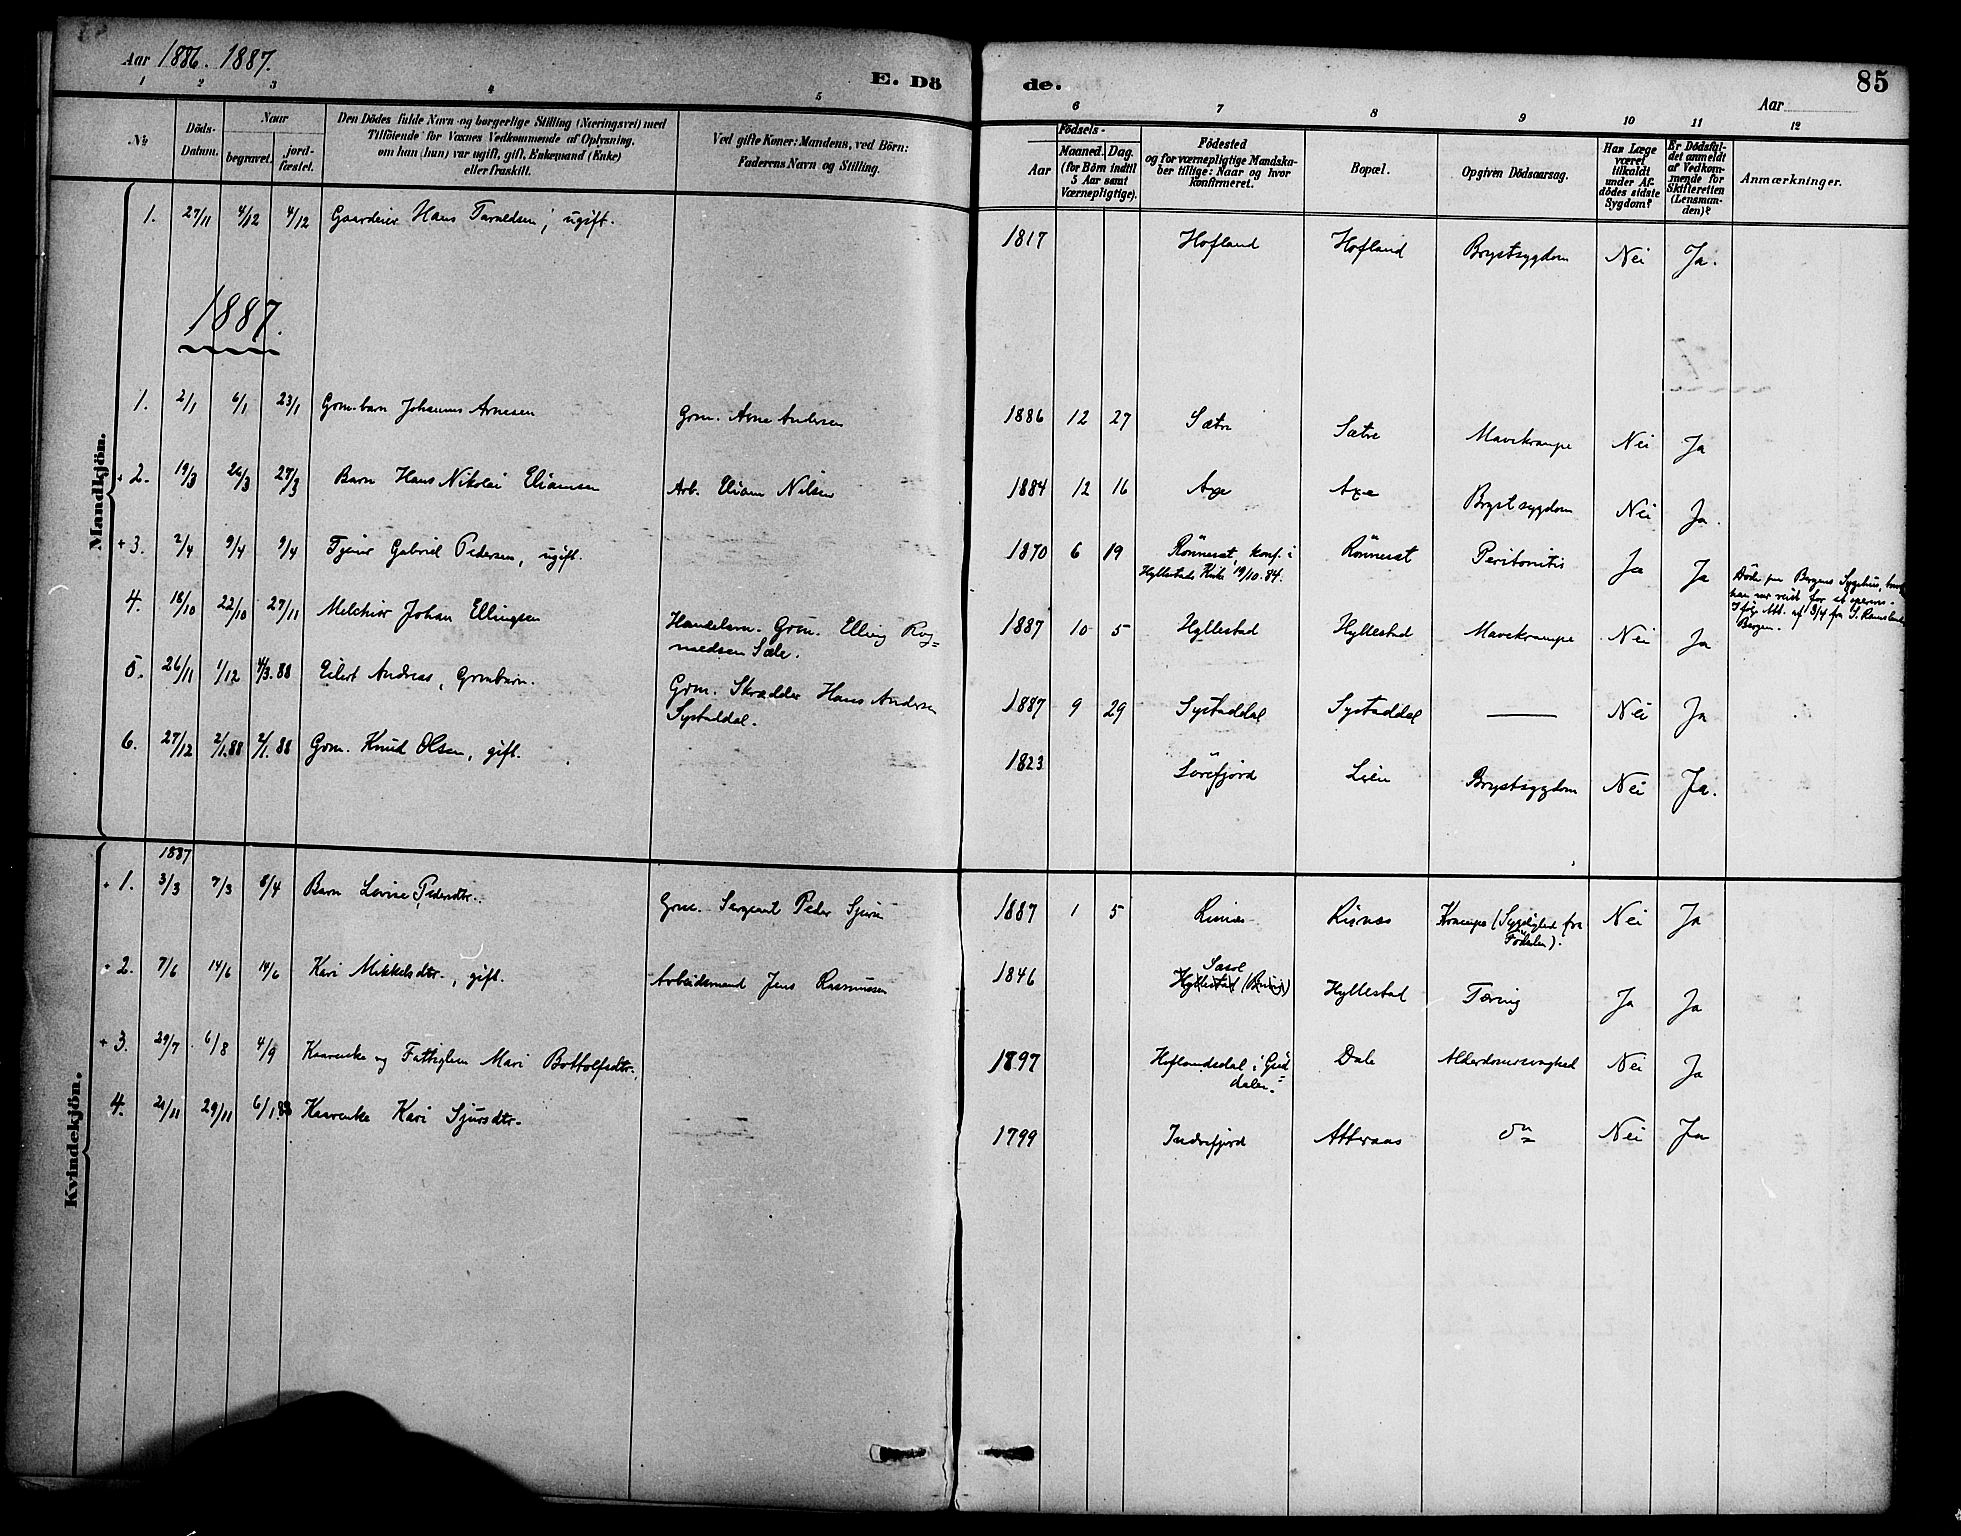 Aar 1886. 1887.
E. Dö
de.
Aar
85
1 2 3 4 5 6 7 8 9 10 11 12
No
Döds-Datum.
Naar
begravet.
jord-fæstet.
Den Dödes fulde Navn og borgerlige Stilling (Næringsvei) med
Tilföiende for Voxnes Vedkommende af Oplysning,
om han (hun) var ugift, gift, Enkemand (Enke)
eller fraskilt.
Ved gifte Koner: Mandens, ved Börn:
Faderens Navn og Stilling.
Födsels-
Aar
Maaned. Dag.
(for Börn indtil
5 Aar samt
Værnepligtige).
Födested
og for værnepligtige Mandska-
ber tillige: Naar og hvor
konfirmeret.
Bopæl.
Opgiven Dödsaarsag.
Har Læge
været
tilkaldt
under Af-
dödes sidste
Sygdom?
Er Dödsfal-
det anmeldt
af Vedkom-
mende for
Skifteretten
(Lensman-
den)?
Anmærkninger.
Mandkjön.
1. 27/11 4/12 4/12 Gaardeier Hans ugift. 1817 Hofland Hofland Brystsygdom Nei Ja.
1887.
1. 2/1 6/1 23/1 Grm.barn Johannes Arnesen Grm. Arne Andersen 1886 12 27 Sætre Sætre Mavekrampe Nei Ja
+ 2. 19/3 26/3 27/3 Barn Hans Nikolai Eliamsen Arb. Eliam Nilsen 1884 12 16 Axe Axe Brystsygdom Nei Ja.
+ 3. 2/4 9/4 9/4 Gabriel Pedersen, ugift. 1870 6 19 Rönneset, konf. i Rönneset Peritonitis Ja Ja
Hyllestads Kirke 19/10.84.
Döde paa Bergens Sygehus, hvor
han var reist for at opereres.
Ifög. Att. af 3/4 fra
Bergen.
4. 18/10 22/10 27/11 Melchior Johan Ellingsen Handelsm. Grm. Elling Rag= 1887 10 5 Hyllestad Hyllestad Mavekrampe Nei Ja
Sæle.
5. 26/11 1/12 4/3.88 Eilert Andreas, Grmbarn. Grm. Skrædder Hans Andersen 1887 9 29 Systaddal Systaddal — Nei Ja
Systaddal.
6. 27/12 2/1.88 2/1.88 Grm. Knud Olsen, gift. 1823 Sörefjord Lien Brystsygdom Nei Ja.
Kvindekjön.
1887
+ 1. 3/3 7/3 8/4 Barn Lovise Pedersdtr. Grm. Sergeant Peder 1887 1 5 Risnæs Risnæs Krampe (Sygelighed fra Nei Ja
Födselen).
+ 2. 7/6 14/6 14/6 Kari Mikkelsdtr., gift. Arbeidsmand Jens Rasmussen 1846 Hyllestad Hyllestad Tæring Ja Ja
+ 3. 29/7 6/8 4/9 Kaarenke og Fattiglem Mari Bottolfsdtr., 1897 Hoflandsdal i Dale Alderdomssvaghed Nei Ja
dalen.
4. 21/11 29/11 6/1.88 Kaarenke Kari Sjursdtr. 1799 Indrefjord Atteraas do Nei Ja